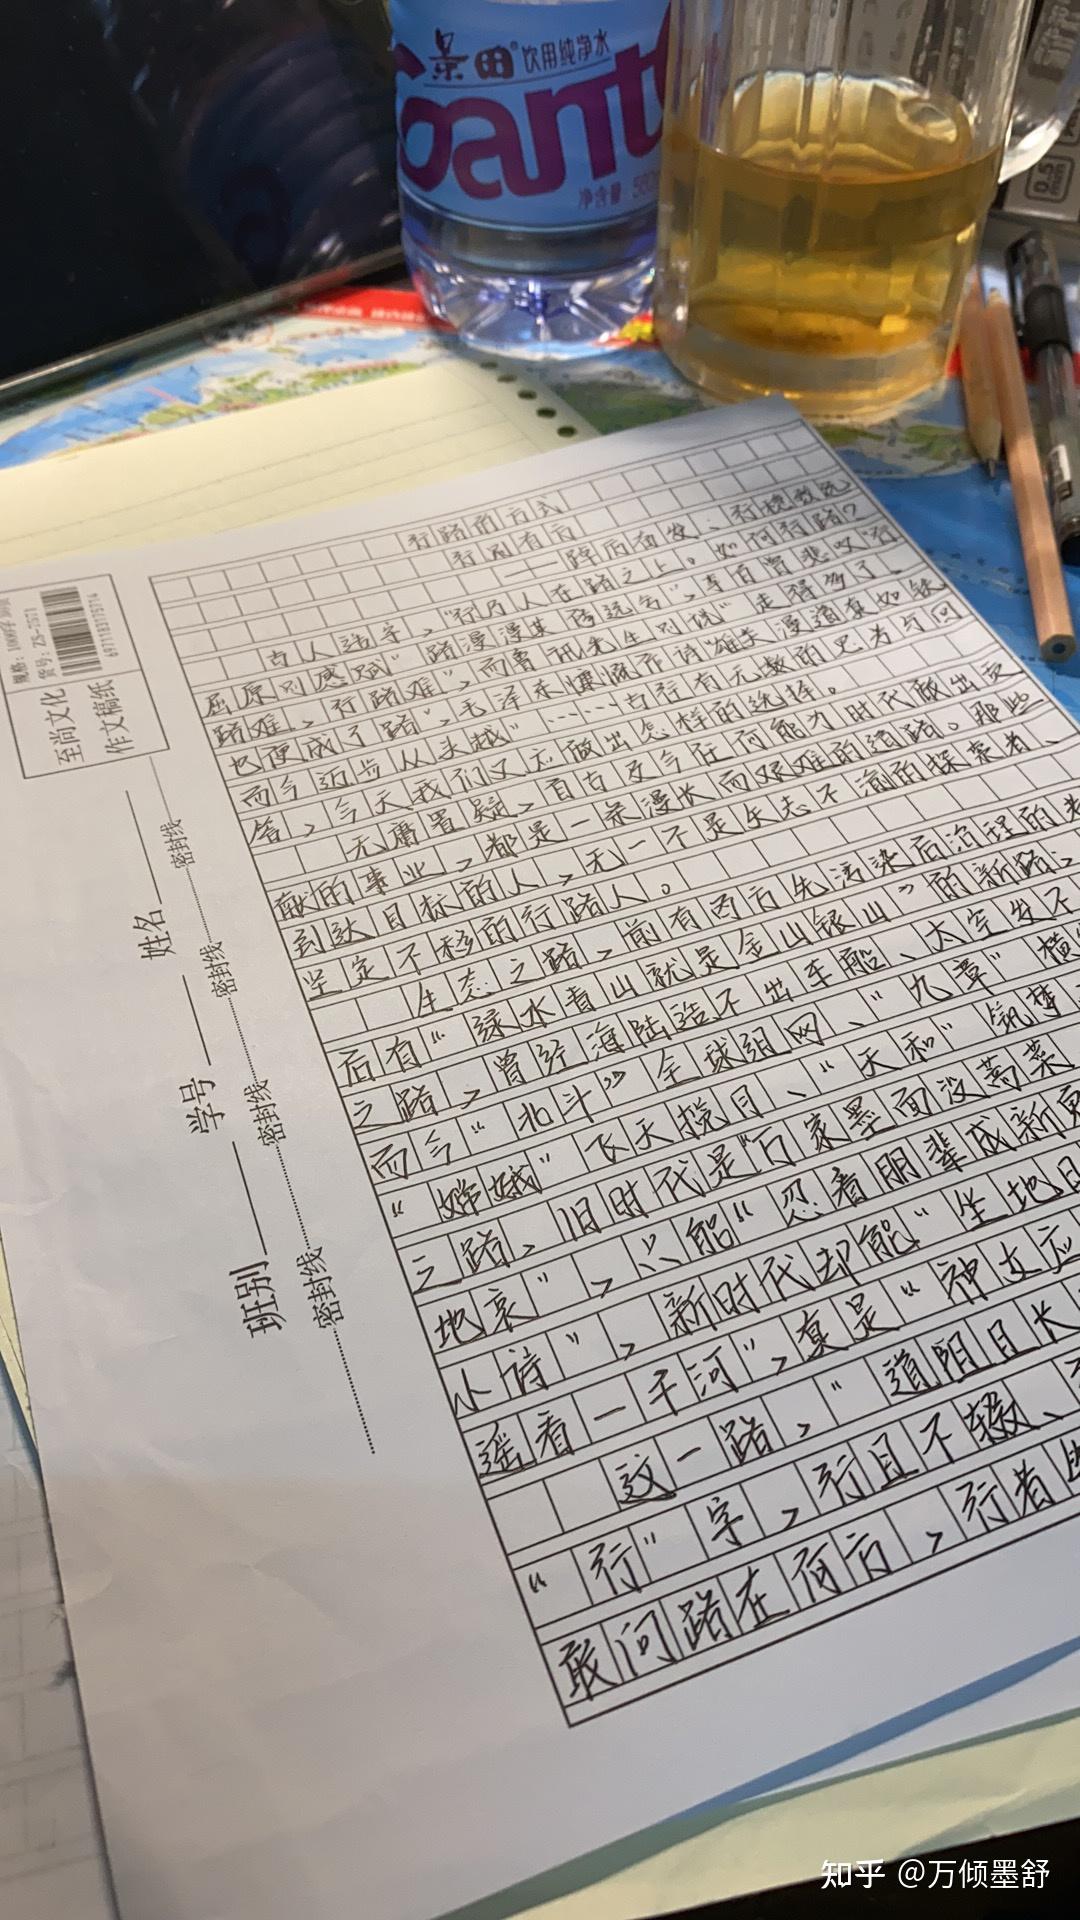 景田®饮用纯净水
Gant
净含量：560
0.5
mm
行路有方式
行而有方
——踔厉奋发、行稳致远
古人造字，“行乃人在路之上。如何行路？
屈原则感赋“路漫漫其修远兮”，李白曾悲叹“行
路难，行路难”，而鲁讯先生则说“走得多了，
也便成了路”，毛泽东慷慨亦诗“雄关漫道真如铁
而今迈步从头越”……古荐有无数的思考与回
答，今天我们又应做出怎样的选择。
无庸置疑，自古及今任何能为时代做出贡
献的事业，都是一条漫长而艰难的道路。那些
到达目标的人，无一不是矢志不渝的探索者、
坚定不移的行路人。
生态之路，前有西方先污染后治理的老
后有“绿水青山就是金山银山”的新路；
之路，曾经海陆造不出车船、太空发不
而今“北斗”全球组网、“九章”横
“嫦娥”长天揽月、“天和”筑梦
之路，旧时代是“万家墨面没蒿莱
地哀”，只能“忍看朋辈成新鬼
小诗”，新时代却能“坐地日
遥看一千河”，真是“神女应
这一路，“道阻且长
“行”字，行且不辍、
敢问路在何方，行者
规格：1000字
货号：ZS-7571
6971183715714
至尚文化
作文稿纸
姓名
学号
班别
密封线
密封线
密封线
密封线
知乎 @万倾墨舒